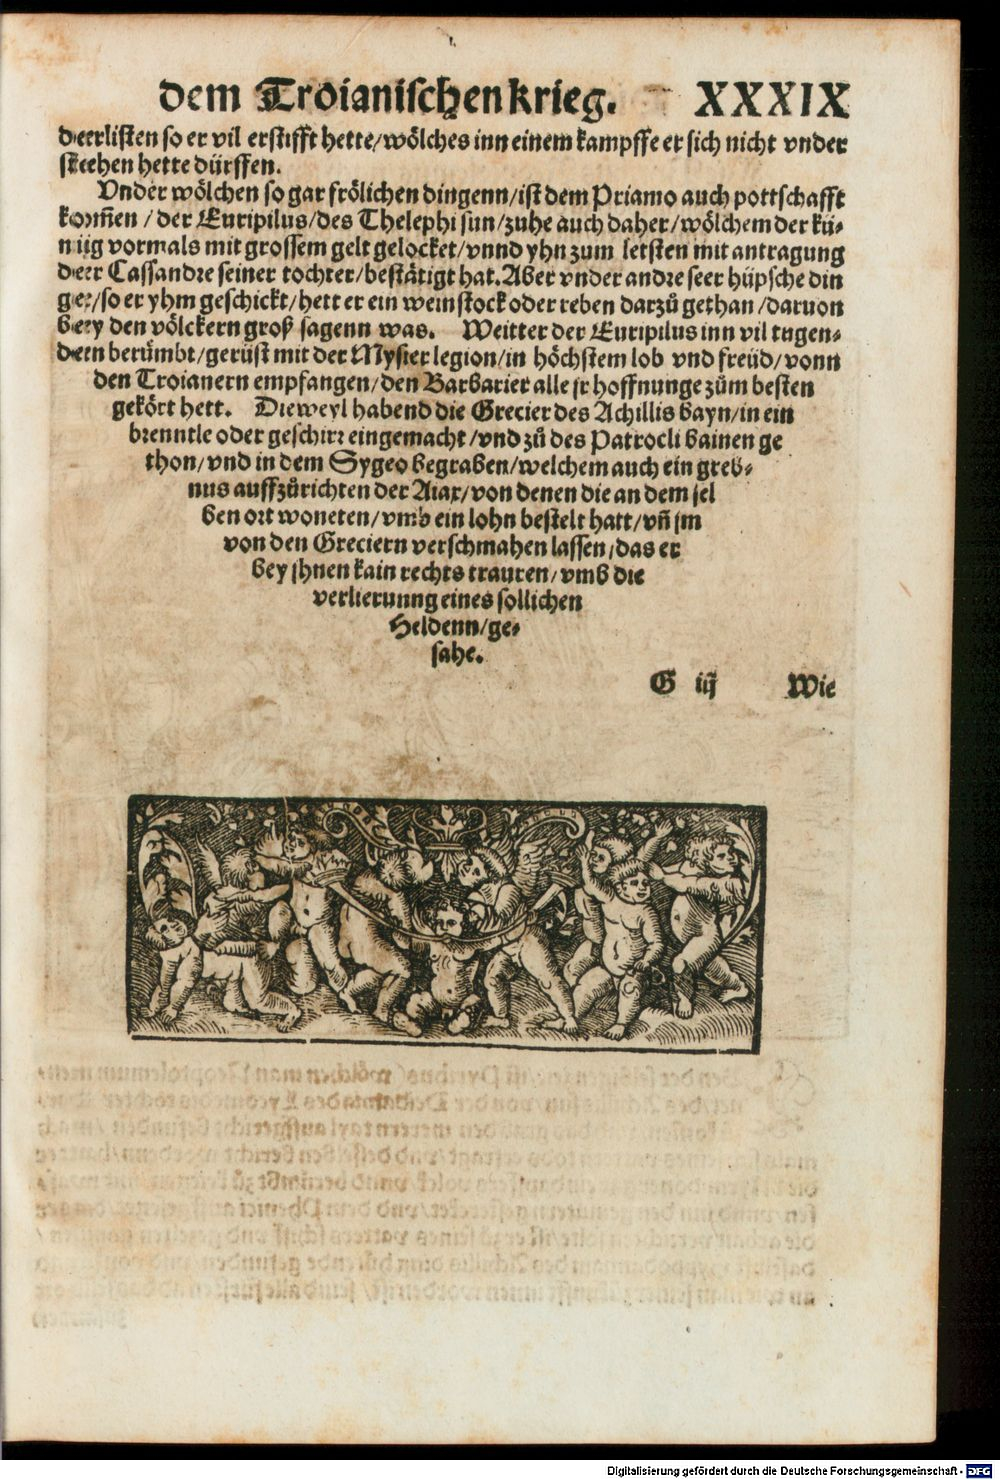 dem Troianischen krieg. XXXIX
deerlisten so er vil erstifft hette/wölches inn einem kampffe er sich nicht vnder
steehen hette dürffen.
Vnder wölchen so gar frölichen dingenn/ist dem Priamo auch pottschafft
kommen / der Euripilus/des Thelephi sun/zuhe auch daher/wölchem der kü-
niig vormals mit grossem gelt gelocket/vnnd yhn zum letsten mit antragung
deer Cassandre seiner tochter/bestätigt hat. Aber vnder andre seer hüpsche din
ger/so er yhm geschickt/hett er ein weinstock oder reben darzů gethan/daruon
bey den völckern groß sagenn was. Weitter der Euripilus inn vil tugen-
deen berůmbt/gerüst mit der Mysier legion/in höchstem lob vnd freüd/vonn
den Troianern empfangen/den Barbarier alle jr hoffnunge zům besten
gekört hett. Die weyl habend die Grecier des Achillis bayn/in ein
brenntle oder geschirr eingemacht/vnd zů des Patrocli bainen ge
thon/vnd in dem Sygeo begraben/welchem auch ein greb-
nus auffzůrichten der Aiax/von denen die an dem sel
ben ort woneten/vmb ein lohn bestelt hatt/vñ jm
von den Greciern verschmahen lassen/das er
bey jhnen kain rechts trauren/vmb die
verlierunng eines sollichen
Heldenn/ge-
sahe.
G iij Wie
Digitalisierung gefördert durch die Deutsche Forschungsgemeinschaft - DFG